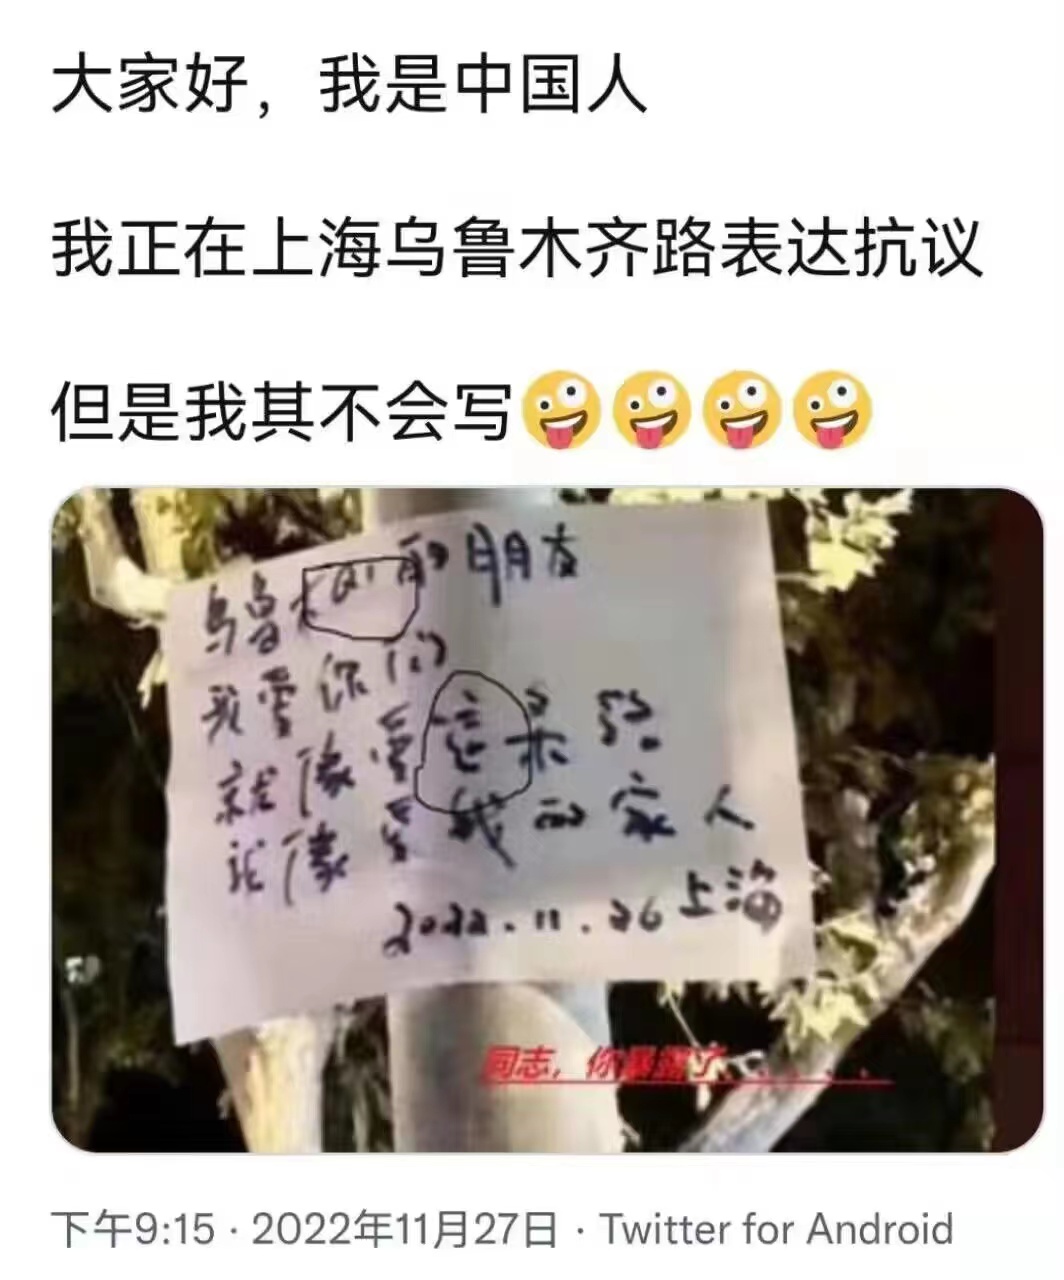 大家好，我是中国人
我正在上海乌鲁木齐路表达抗议
但是我其不会写🤪🤪🤪🤪
乌鲁木的朋友
我爱你们
就像爱这条路
就像爱我的家人
2022.11.26 上海
同志，你暴露了......
下午9:15 · 2022年11月27日 · Twitter for Android